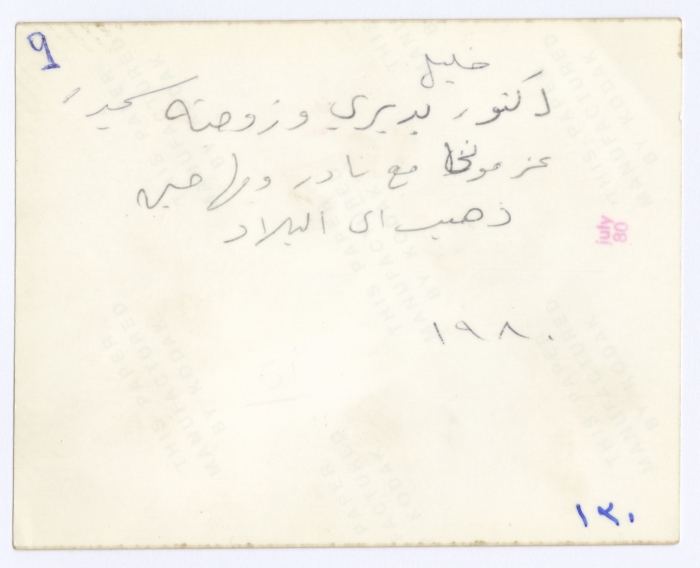 9
خليل
دكتور بديري وزوجته
عزمونا مع نادر ومها حين
ذهبت الى البلاد
july
80
١٩٨٠
١٣٠
THIS PAPER
MANUFACTURED
BY KODAK